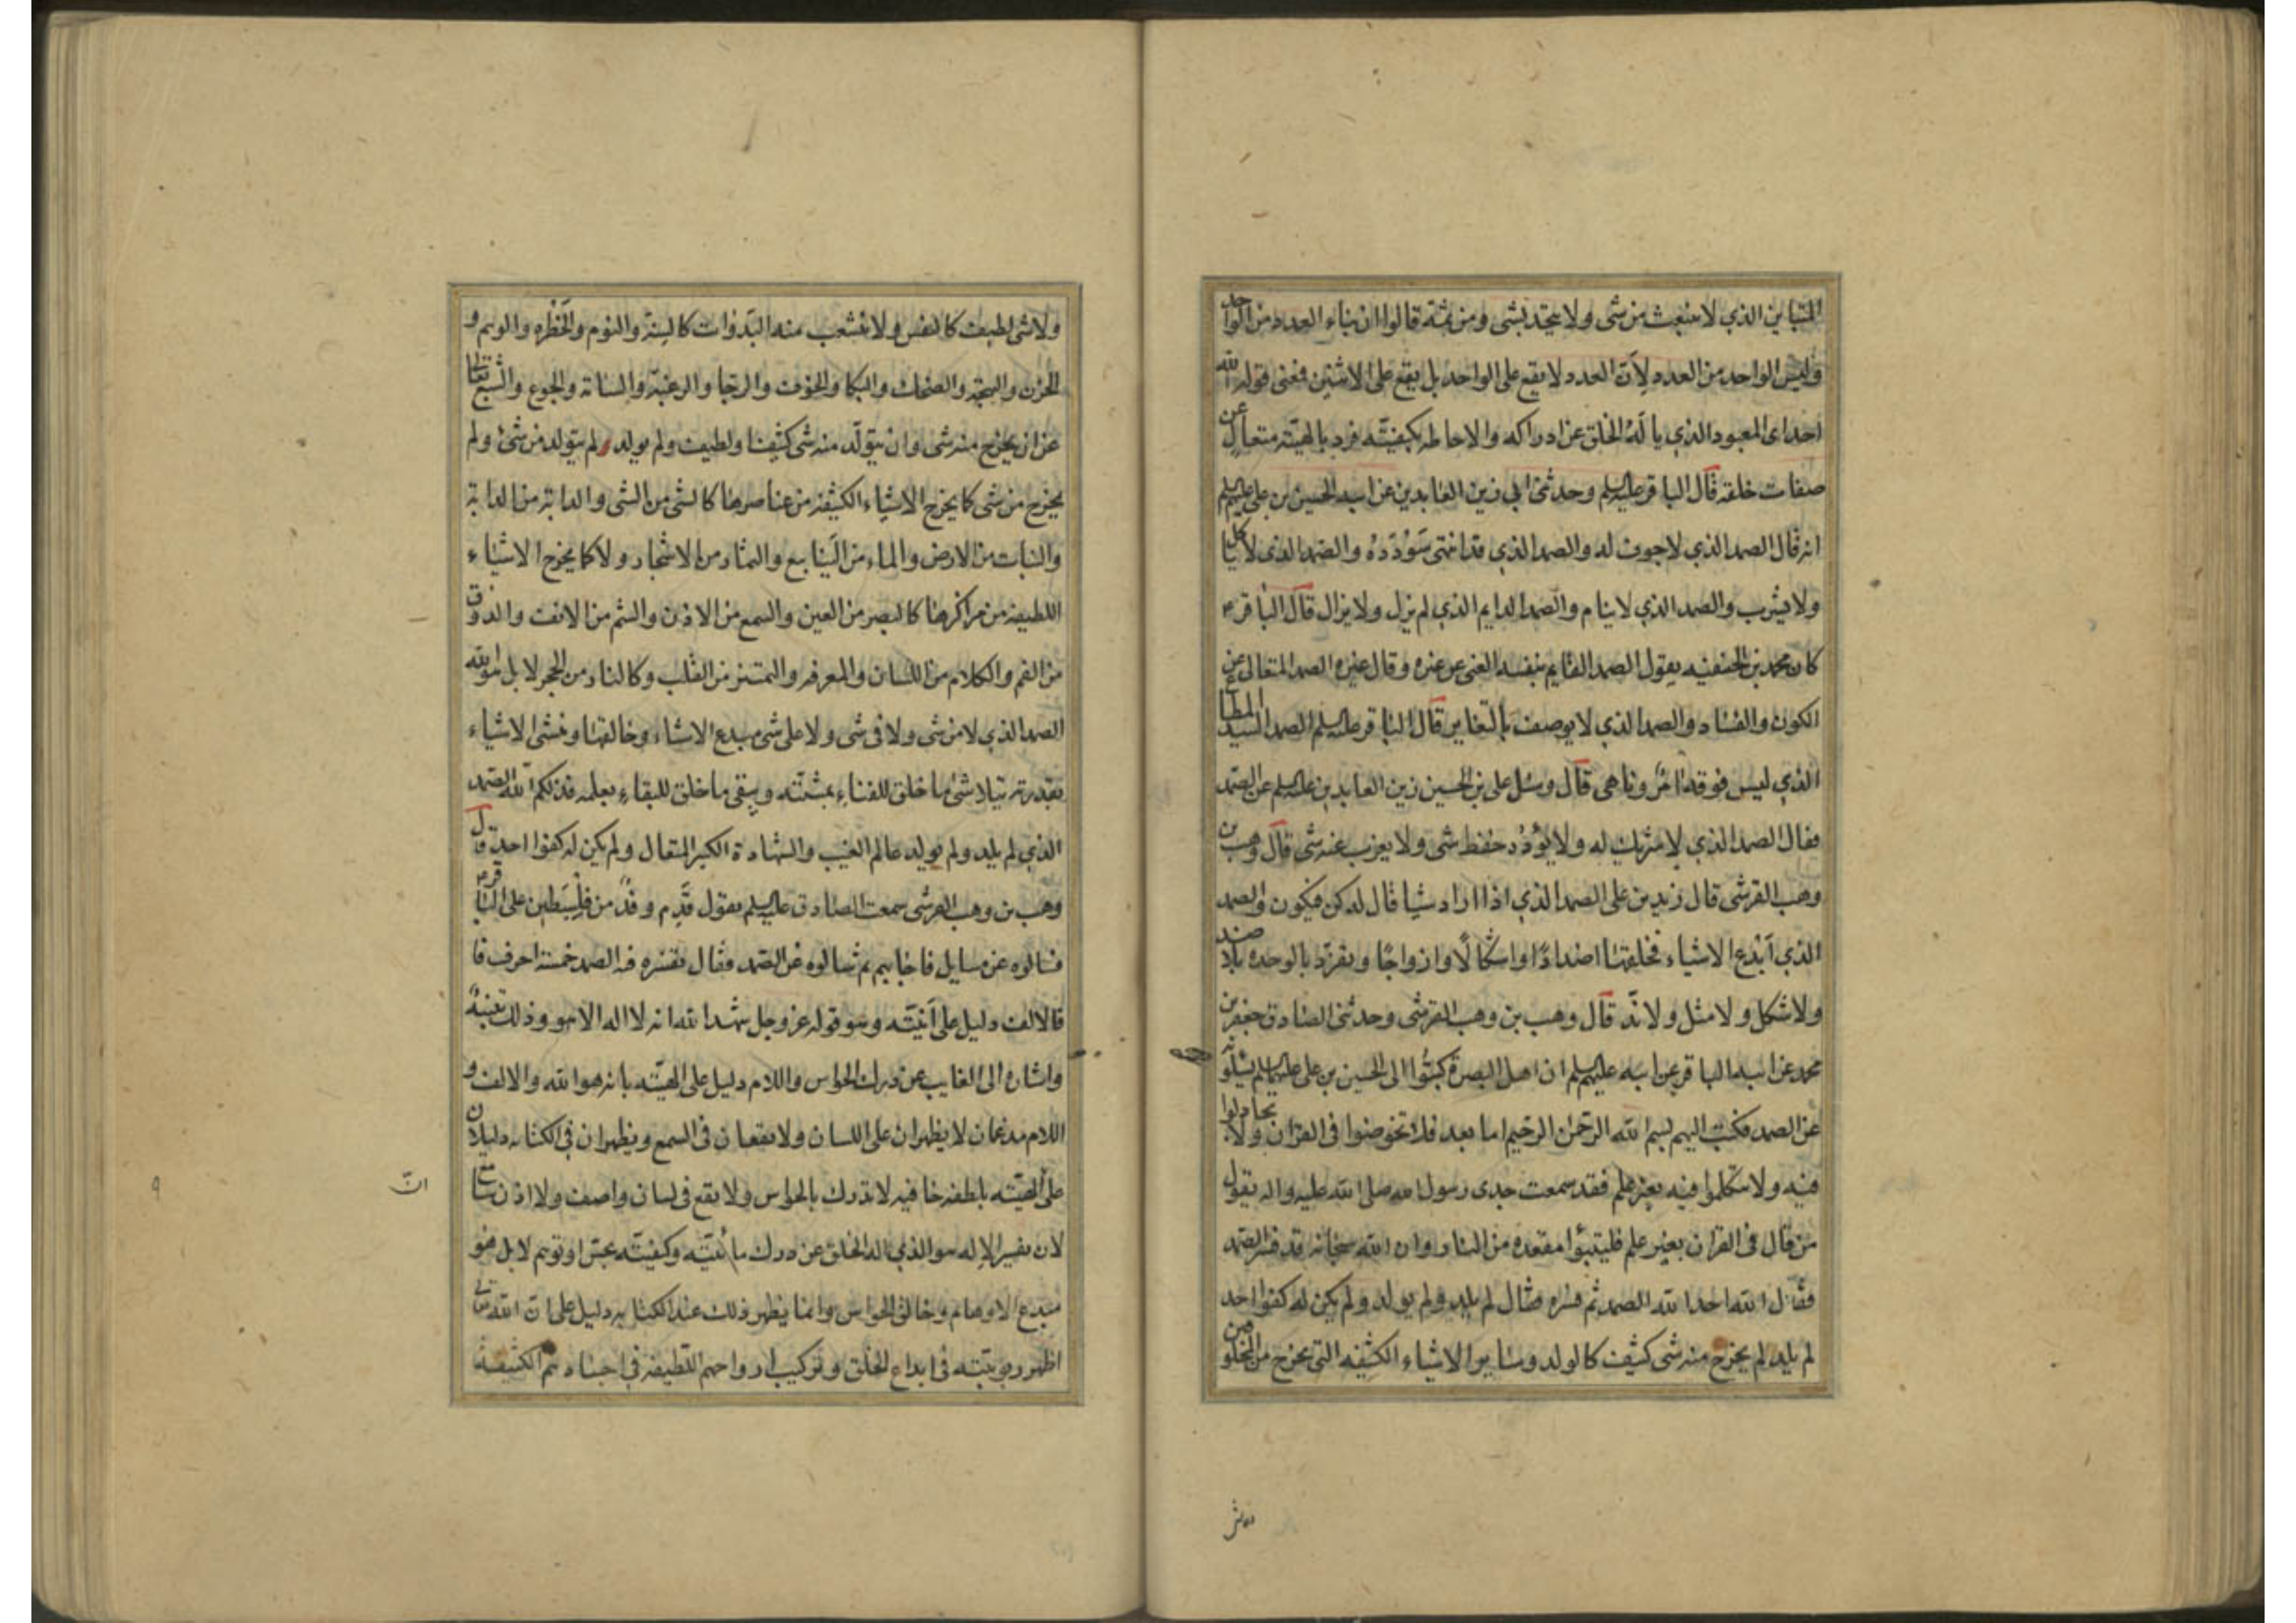 المتباين الذي لا ينبعث من شى ولا يتحد بشى ومن ثمة قالوا ان بناء العدد من الواحد
وليس الواحد من العدد لأنّ العدد لا يقع على الواحد بل يقع على الاثنين فمعنى قوله الله
احد اى المعبود الذي يأله الخلق عن ادراكه والاحاطة بكيفيّته فرد بالهيّته متعال عن
صفات خلقه قال الباقر عليه السلم وحدثنى ابي زين العابدين عن ابيه الحسين بن على عليهم السلم
انه قال الصمد الذي لا جوف له والصمد الذي قد انتهى سَوُدَدُهُ والصمد الذى لا ياكل
ولا يشرب والصمد الذي لا ينام والصمد الدايم الذي لم يزل ولا يزال قال الباقر ع
كان محمد بن الحنفيه يقول الصمد القايم بنفسه الغنى عن غيره وقال غيره الصمد المتعالى عن
الكون والفساد والصمد الذي لا يوصف بالتغاير قال الباقر عليه السلم الصمد السيد المطاع
الذي ليس فوقه امرٌ وناهى قال وسئل على بن الحسين زين العابدين عليه السلم عن الصّمد
فقال الصمد الذي لا شريك له ولا يؤدُه حفظ شى ولا يعزب عنه شى قال وهب بن
وهب القرشى قال زيد بن على الصمد الذي اذا اراد شيا قال له كن فيكون والصمد
الذي اَبْدع الاشياء فخلقها اضدادًا واشكالًا وازواجًا وتفرّد بالوحده بلا ضد
ولا شكل ولا مثل ولا ندّ قال وهب بن وهب القرشى وحدثنى الصادق جعفر بن
محمد عن ابيه الباقر عن ابيه عليهم السلم ان اهل البصرة كتبُوا الى الحسين بن على عليهما السلم يسئلونه
عن الصمد فكتب اليهم بسم الله الرحمن الرحيم اما بعد فلا تخوضوا فى القران ولا تجادلوا
فيه ولا تتكلموا فيه بغير علم فقد سمعت جدى رسول الله صلى الله عليه واله يقول
من قال فى القران بغير علم فليتبوّا مقعده من النار وان الله سبحانه قد فسّر الصّمد
فقال الله احد الله الصمد ثم فسّره فقال لم يلد ولم يولد ولم يكن له كفوا احد
لم يلد لم يخرج منه شى كثيف كالولد وساير الاشياء الكثيفه التى يخرج من المخلوقين
ولا شى لطيف كالنفس ولا ينشعب منه البَدَوات كالسِنَة والنوم والخَطْره والوهم و
الحزن والبهجة والضحك والبكا والخوف والرجا والرغبة والسئامة والجوع والشّبع تعالى
عن ان يخرج منه شى وان يتولّد منه شى كثيف او لطيف ولم يولد ولم يتولد من شئ ولم
يخرج من شى كما يخرج الاشياء الكثيفه من عناصرها كالشى من الشى والدابة من الدابة
والنبات من الارض والماء من الينابيع والثمار من الاشجار ولا كما يخرج الاشياء
اللطيفه من مراكزها كالبصر من العين والسمع من الاذن والشم من الانف والذوق
من الفم والكلام من اللسان والمعرفه والتميز من القلب وكالنار من الحجر لا بل هو الله
الصمد الذي لا من شى ولا فى شى ولا على شى مبدع الاشياء وخالقها ومنشى الاشياء
بقدرته يتلاشى ما خلق للفناء بمشيّته ويبقى ما خلق للبقاء بعلمه فذلكم الله الصّمد
الذي لم يلد ولم يولد عالم الغيب والشهادة الكبير المتعال ولم يكن له كفوا احد قال
وهب بن وهب القرشى سمعت الصادق عليه السلم يقول قَدِم وفدٌ من فِلِسْطين على الباقر ع
فسالوه عن مسايل فاجابهم ثم سالوه عن الصّمد فقال تفسيره فيه الصمد خمسة احرف فا
فالالف دليل على اَنّيّته وهو قوله عز وجل شهد الله انه لا اله الا هو وذلك تنبيهٌ
واشاره الى الغايب عن درك الحواس واللام دليل على الهيّته بانه هو الله والالف و
اللام مدغمان لا يظهران على اللسان ولا يقعان فى السمع ويظهران فى الكتابه دليلان
على الهيّته بلطفه خافيه لا تدرك بالحواس ولا يقع فى لسان واصف ولا اذن سامع
لان تفسير الاله هو الذي اله الخلق عن درك مائيّته وكيفيّته بحسّ او توهم لا بل هو
مبدع الاوهام وخالق الحواس وانما يظهر ذلك عند الكتابه دليل على انّ الله تعالى
اظهر ربوبيّته فى ابداع الخلق وتركيب ارواحهم اللطيفه فى اجسادهم الكثيفه
انّ